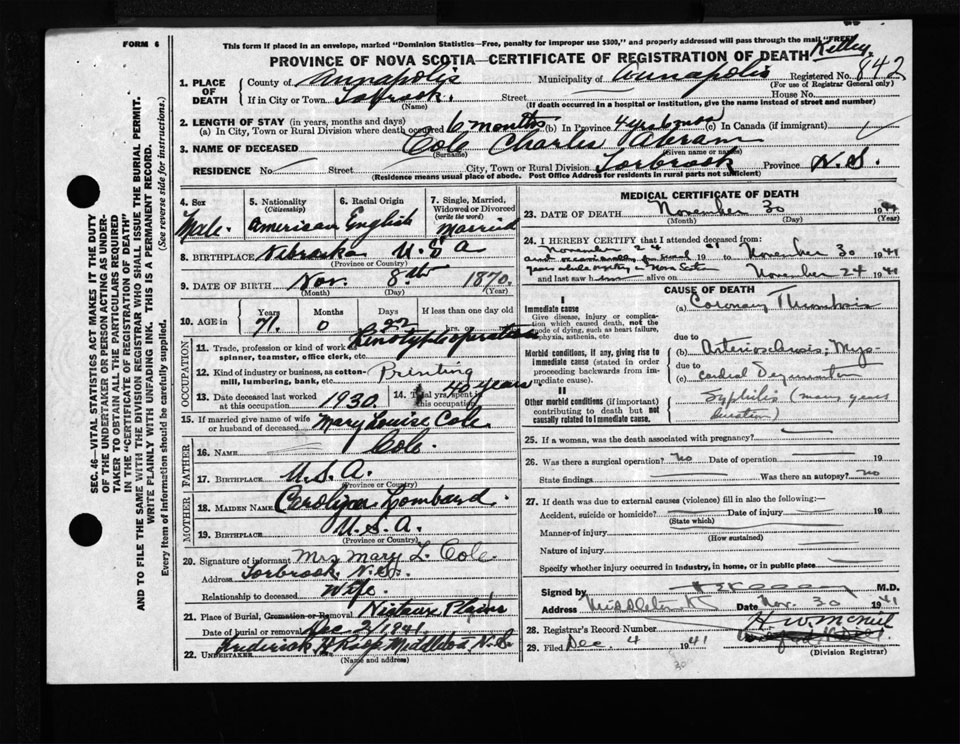 FORM 6
This form if placed in an envelope, marked "Dominion Statistics—Free, penalty for improper use $300," and properly addressed will pass through the mail "FREE"
PROVINCE OF NOVA SCOTIA—CERTIFICATE OF REGISTRATION OF DEATH
Kelley
1. PLACE OF DEATH County of Annapolis Municipality of Annapolis Registered No. 842
(For use of Registrar General only)
If in City or Town Torbrook. Street House No.
(Name) (If death occurred in a hospital or institution, give the name instead of street and number)
2. LENGTH OF STAY (in years, months and days)
(a) In City, Town or Rural Division where death occurred 6 months (b) In Province 4 yrs 6 mos (c) In Canada (if immigrant)
3. NAME OF DECEASED Cole Charlie Abram
(Surname) (Given name or names)
RESIDENCE No Street City, Town or Rural Division Torbrook Province N.S.
(Residence means usual place of abode. Post Office Address for residents in rural parts not sufficient)
4. Sex 5. Nationality (Citizenship) 6. Racial Origin 7. Single, Married, Widowed or Divorced (write the word)
Male. American English Married
8. BIRTHPLACE Nebraska U S A
(Province or Country)
9. DATE OF BIRTH Nov. 8th 1870.
(Month) (Day) (Year)
10. AGE in Years Months Days If less than one day old
71. 0 22 hrs. min.
OCCUPATION
11. Trade, profession or kind of work as spinner, teamster, office clerk, etc. Linotype operator
12. Kind of industry or business, as cotton-mill, lumbering, bank, etc. Printing
13. Date deceased last worked at this occupation 1930. 14. Total yrs. spent in this occupation 40 years
15. If married give name of wife or husband of deceased Mary Louise Cole
FATHER
16. NAME Cole
17. BIRTHPLACE U.S.A.
(Province or Country)
MOTHER
18. MAIDEN NAME Carolyna Lombard.
19. BIRTHPLACE U.S.A.
(Province or Country)
20. Signature of informant Mrs Mary L. Cole.
Address Torbrook, N.S.
Relationship to deceased Wife.
21. Place of Burial, Cremation or Removal Nictaux Plains
Date of burial or removal Dec 2/1941
22. UNDERTAKER Middleton N.S.
(Name and address)
MEDICAL CERTIFICATE OF DEATH
23. DATE OF DEATH November 30 1941
(Month) (Day) (Year)
24. I HEREBY CERTIFY that I attended deceased from:
November 2nd 1941 to November 30 1941
and occasionally for several years while in Nova Scotia
and last saw h alive on November 24 1941
CAUSE OF DEATH
I
Immediate cause
Give disease, injury or complication which caused death, not the mode of dying, such as heart failure, asphyxia, asthenia, etc.
(a) Coronary Thrombosis
due to
Morbid conditions, if any, giving rise to immediate cause (stated in order proceeding backwards from immediate cause)
(b) Arteriosclerosis, Myo-
due to
(c) cardial Degeneration
II
Other morbid conditions (if important) contributing to death but not causally related to immediate cause.
Syphilis (many years duration)
25. If a woman, was the death associated with pregnancy?
26. Was there a surgical operation? no Date of operation
State findings Was there an autopsy? no
27. If death was due to external causes (violence) fill in also the following:—
Accident, suicide or homicide? Date of injury 19
(State which)
Manner of injury
(How sustained)
Nature of injury
Specify whether injury occurred in Industry, in home, or in public place
Signed by M.D.
Address Middleton Date Nov. 30 1941
28. Registrar's Record Number H. W. McNeil
29. Filed Dec. 4 1941
(Division Registrar)
30
SEC. 46—VITAL STATISTICS ACT MAKES IT THE DUTY
OF THE UNDERTAKER OR PERSON ACTING AS UNDER-
TAKER TO OBTAIN ALL THE PARTICULARS REQUIRED
IN THE "CERTIFICATE OF REGISTRATION OF DEATH"
AND TO FILE THE SAME WITH THE DIVISION REGISTRAR WHO SHALL ISSUE THE BURIAL PERMIT.
WRITE PLAINLY WITH UNFADING INK. THIS IS A PERMANENT RECORD.
Every item of information should be carefully supplied. (See reverse side for instructions.)